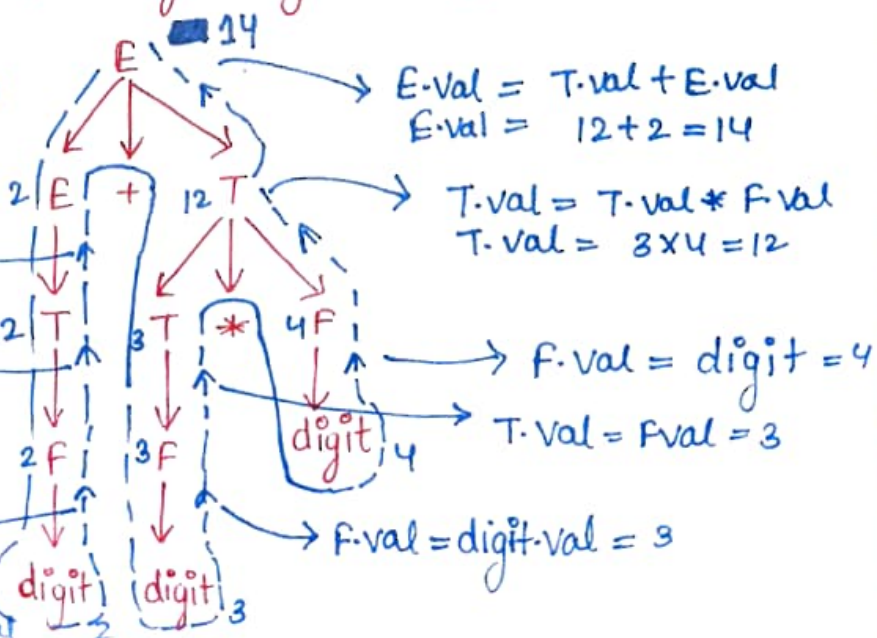 14
E
E·Val = T·val + E·val
E·val = 12+2=14
2 E + 12 T
T·val = T·val * F·val
T·val = 3×4=12
2 T 3 T * 4 F
F·val = digit = 4
T·val = Fval = 3
digit 4
2 F 3 F
F·val = digit·val = 3
digit 2 digit 3